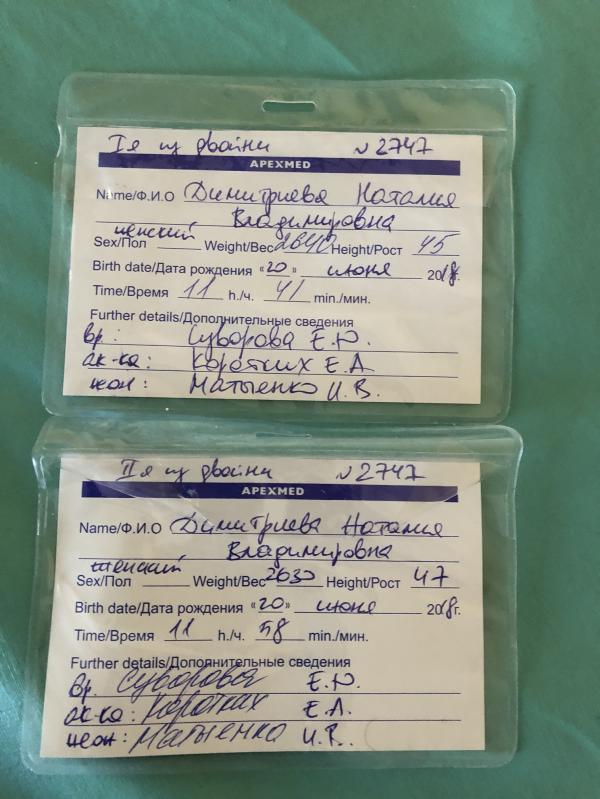 Iя из двойни № 2747
APEXMED
Name/Ф.И.О Димитриева Наталия
Владимировна
Sex/Пол женский Weight/Вес 2640 Height/Рост 45
Birth date/Дата рождения «20» июня 2018г.
Time/Время 11 h./ч. 41 min./мин.
Further details/Дополнительные сведения
вр.: Суворова Е.Ю.
ак-ка: Коротких Е.А
неон: Матыенко И.В.
IIя из двойни № 2747
APEXMED
Name/Ф.И.О Димитриева Наталия
Владимировна
Sex/Пол женский Weight/Вес 2630 Height/Рост 47
Birth date/Дата рождения «20» июня 2018г.
Time/Время 11 h./ч. 58 min./мин.
Further details/Дополнительные сведения
вр. Суворова Е.Ю.
ак-ка: Коротких Е.А.
неон: Матыенко И.В.